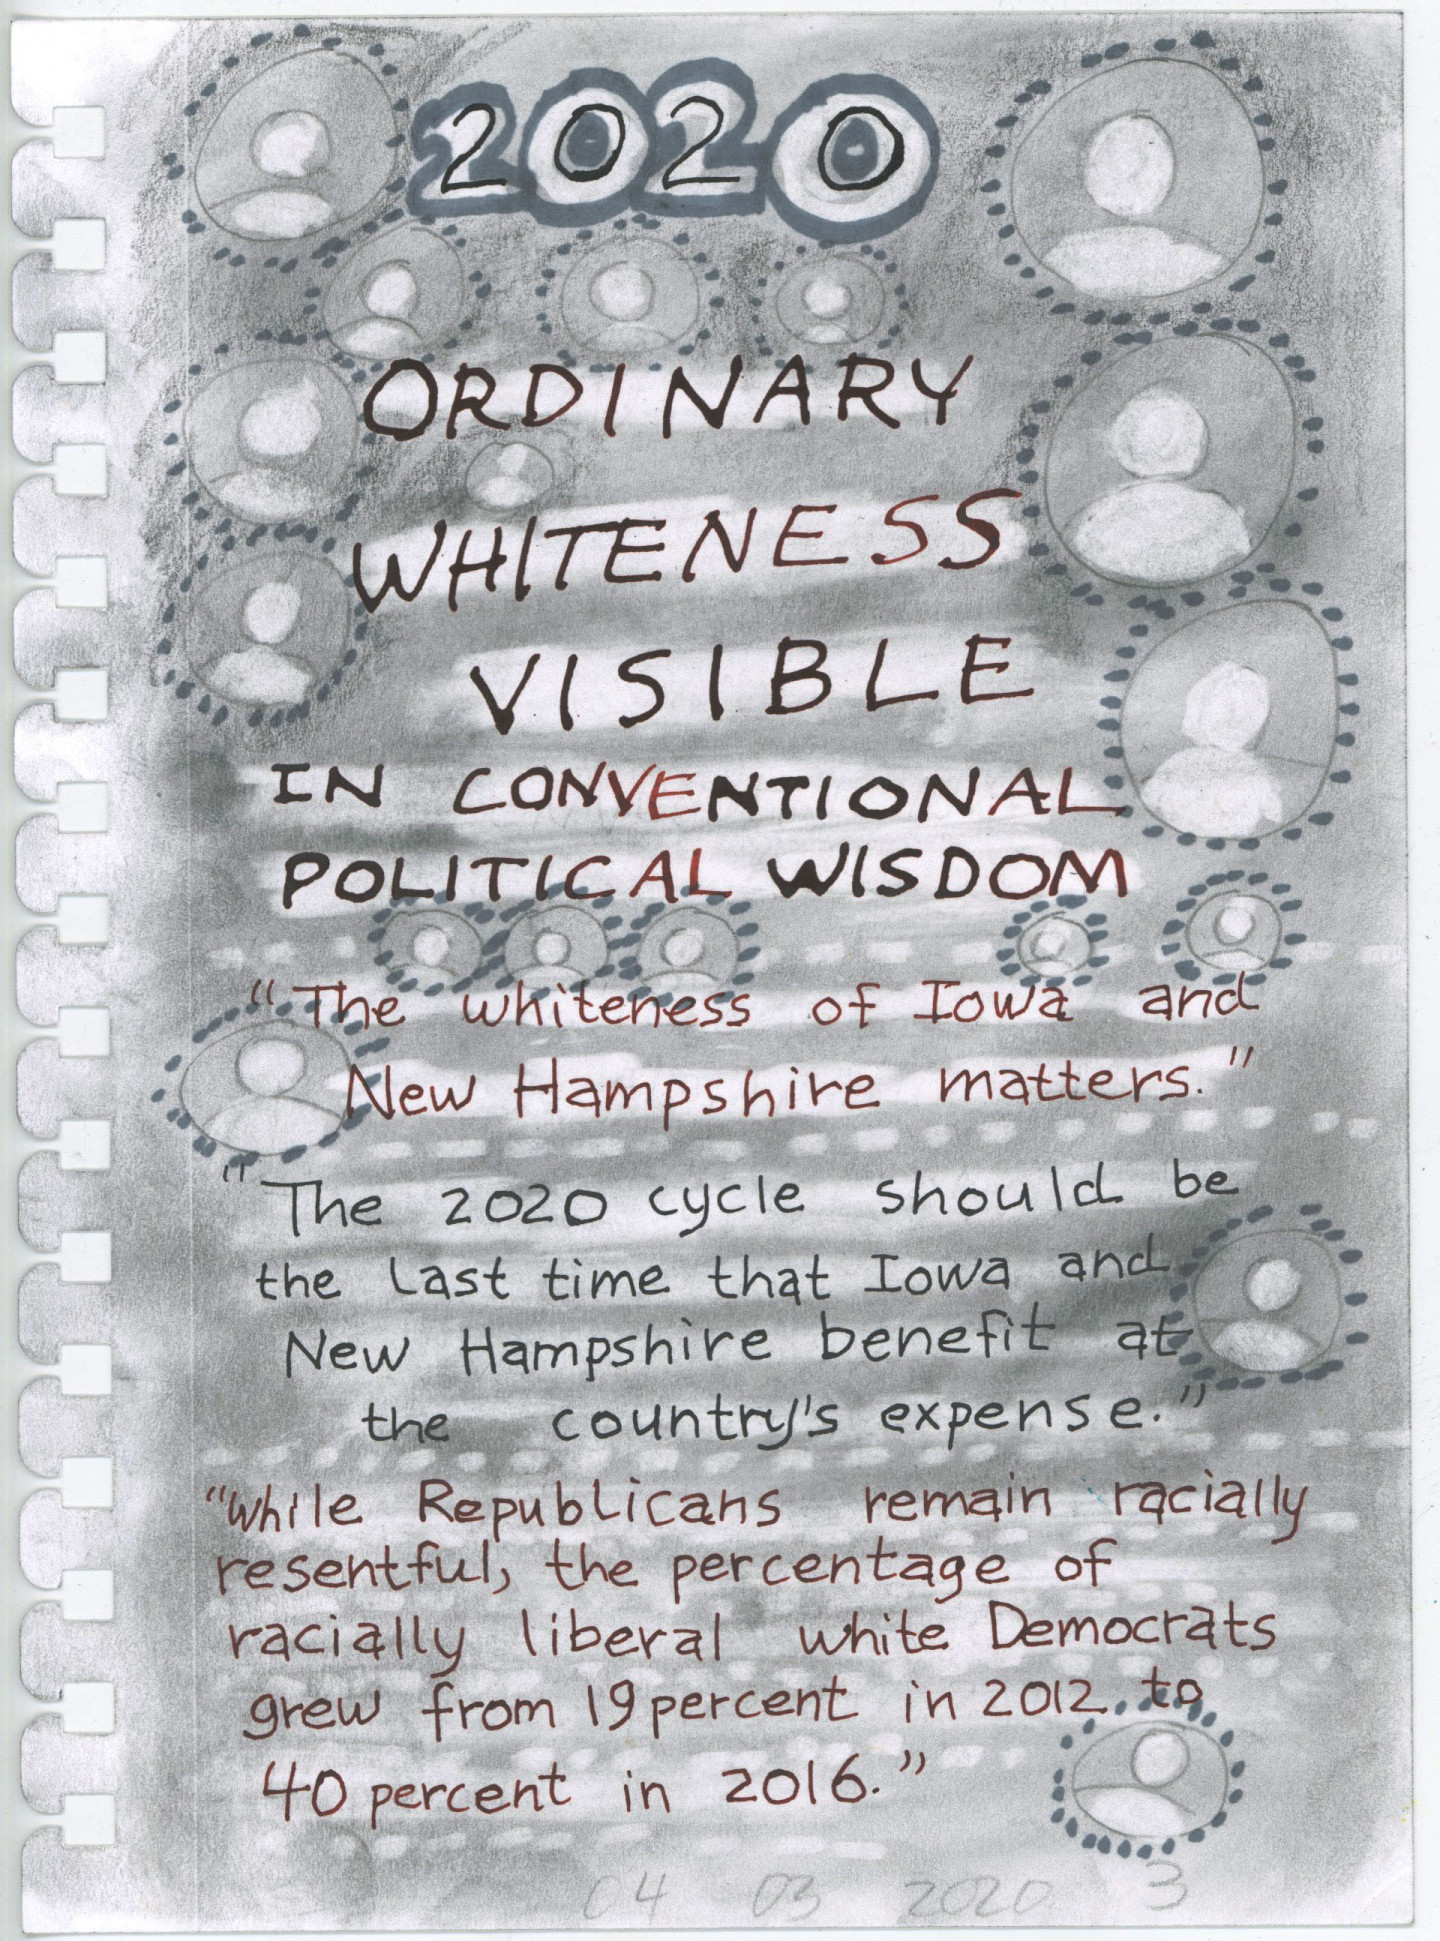 2020
ORDINARY
WHITENESS
VISIBLE
IN CONVENTIONAL
POLITICAL WISDOM
"The whiteness of Iowa and
New Hampshire matters."
"The 2020 cycle should be
the last time that Iowa and
New Hampshire benefit at
the country's expense."
"While Republicans remain racially
resentful, the percentage of
racially liberal white Democrats
grew from 19 percent in 2012 to
40 percent in 2016."
04 03 2020 3